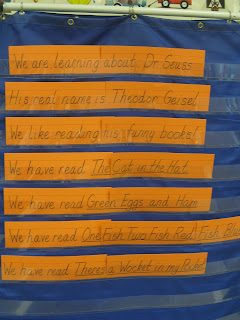 We are learning about Dr. Seuss
His real name is Theodor Geise!
We like reading his funny books!
We have read The Cat in the Hat
We have read Green Eggs and Ham
We have read One Fish Two Fish Red Fish Blue
We have read There's a Wocket in my Pocket